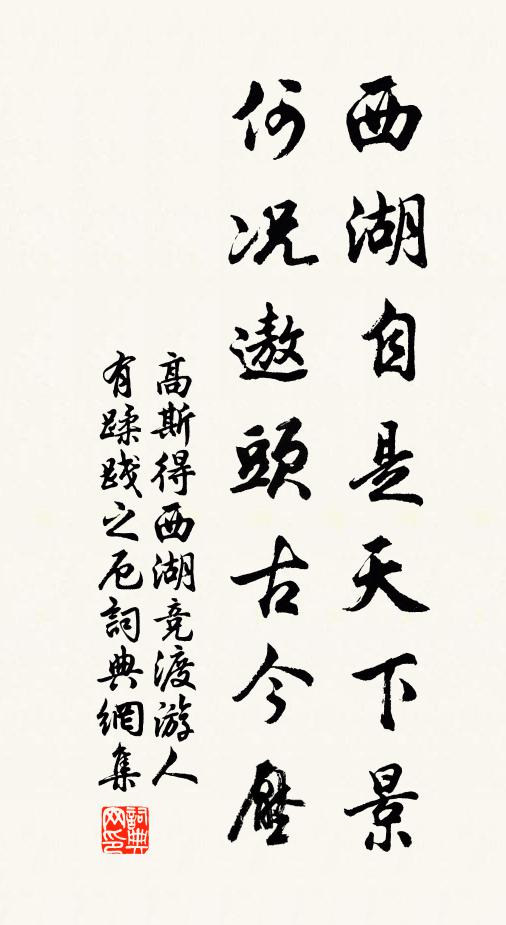 西湖自是天下景
何况遨頭古今壓
高斯得西湖竞渡游人
有蹂践之厄詞典網集
詞典网印